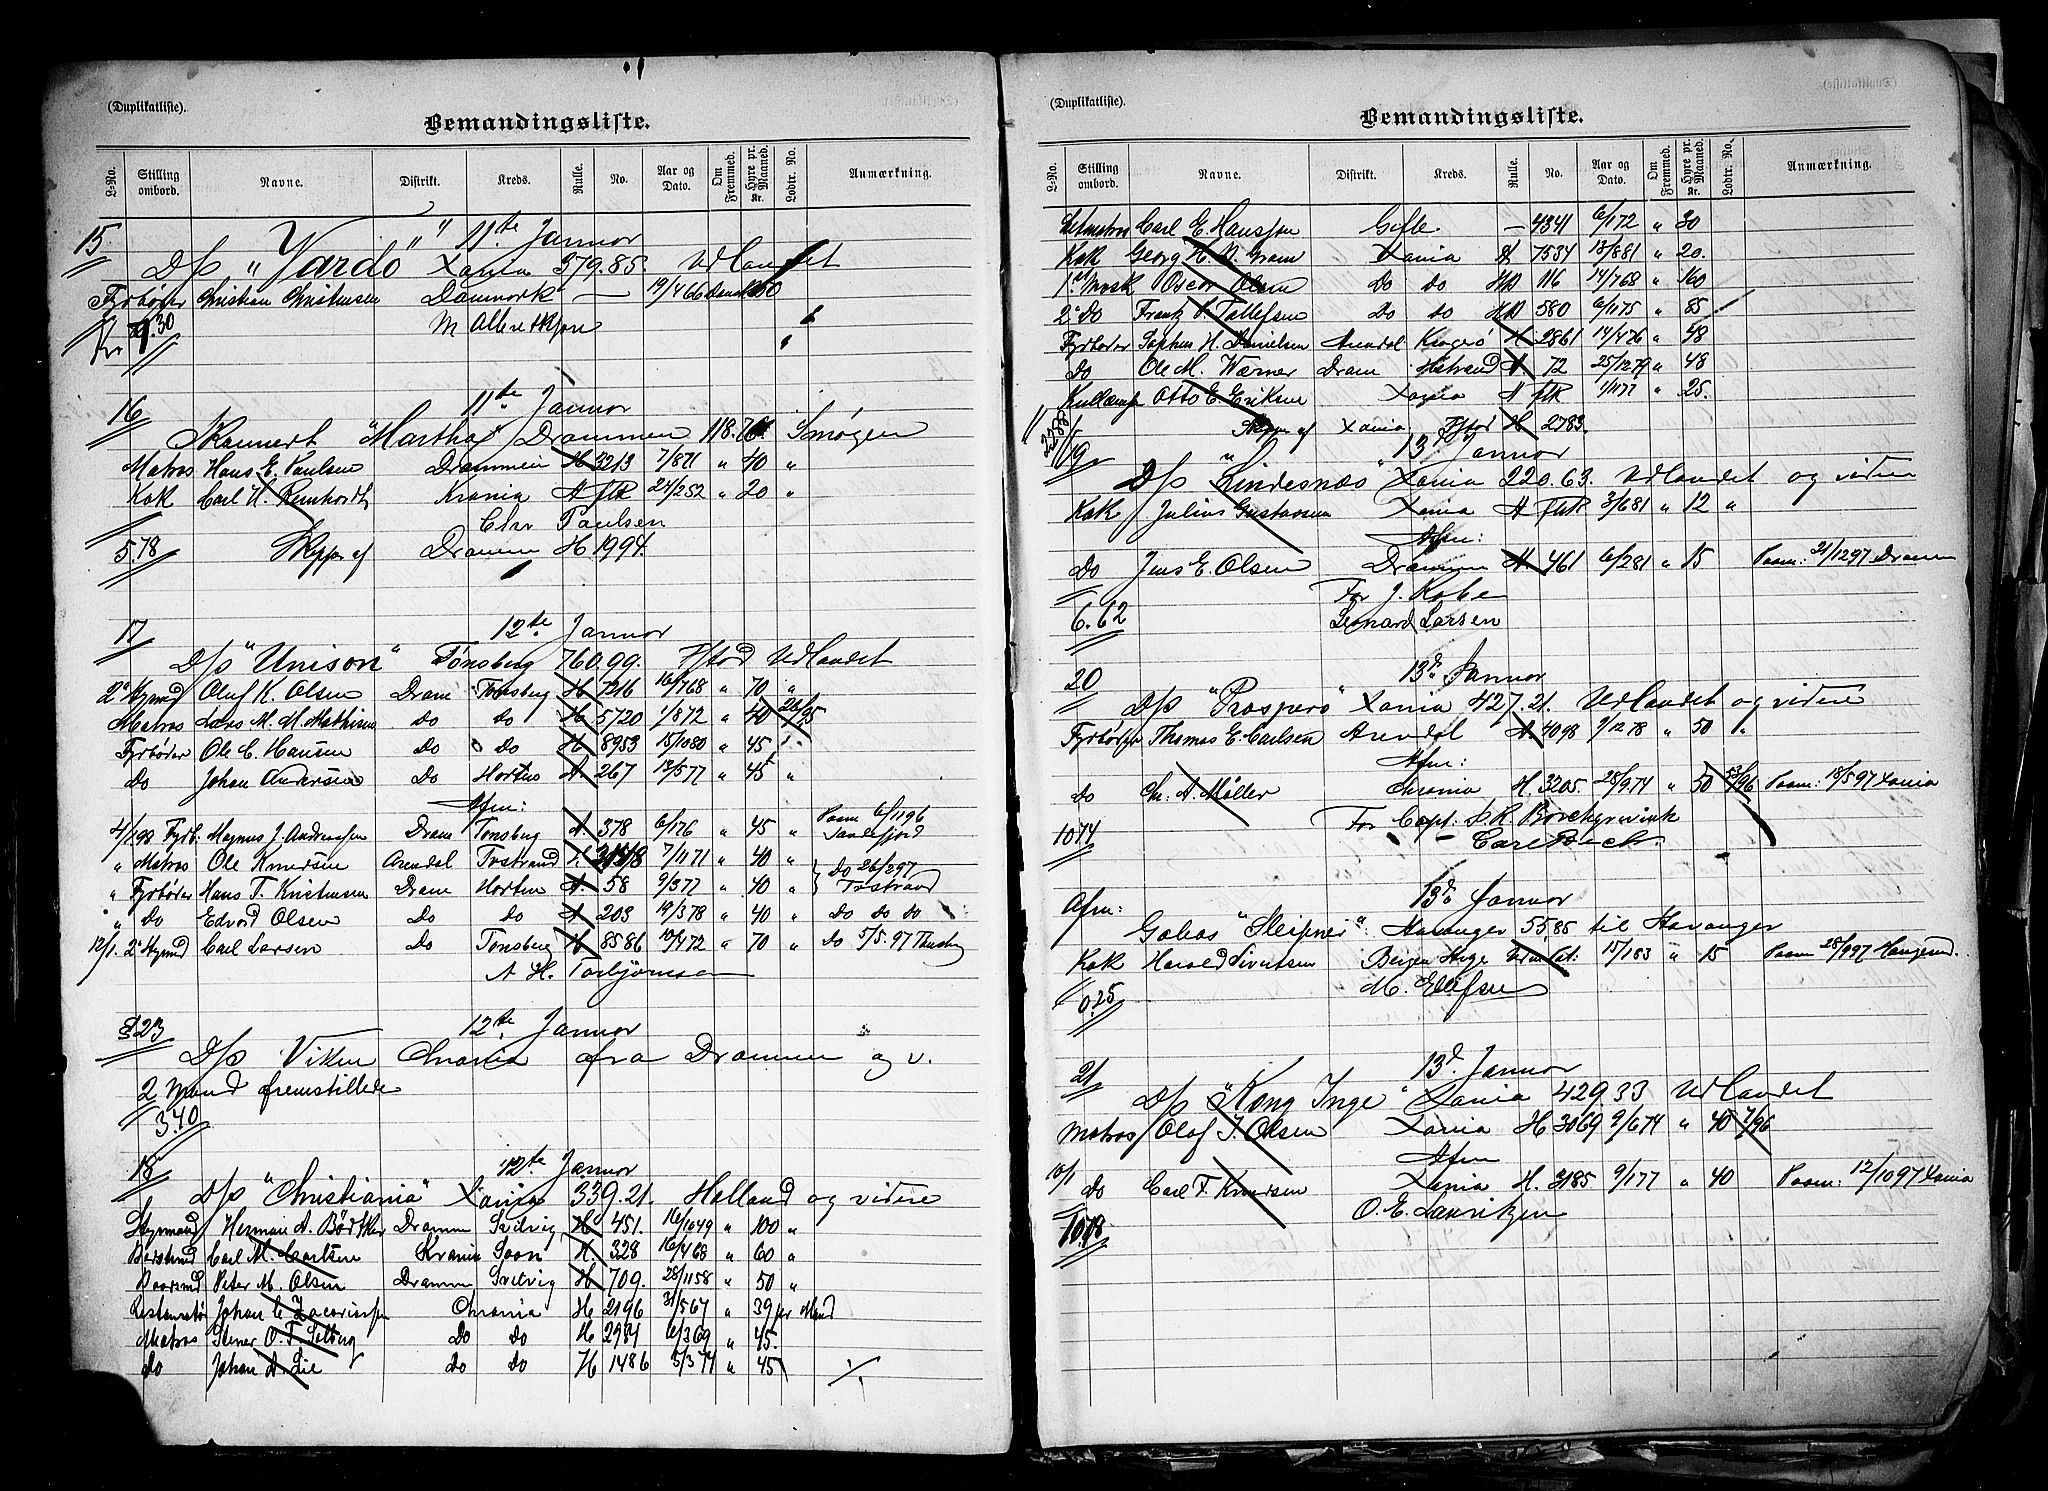 (Duplikatliste).
Bemandingsliste.
L-No. Stilling ombord. Navne. Distrikt. Kreds. Rulle. No. Aar og Dato. Om Fremmed. Hyre pr. Maaned. Kr. Lodtr. No. Anmærkning.
15 11te Januar
D/s "Vardö" Xania 379.85. Udlandet
Fyrböder Christian Christensen Danmark — 19/4 66 Dansk
Kr 9.30
16 11te Januar
Skonnert "Martha" Drammen 118. Smøgen
Matros Hans E. Paulsen Drammen H 3213 7/8 71 " 40 "
Kok Carl H. Reinhordt Krania A FtR 24/2 52 " 20 "
Chr Paulsen
5.78 Skipper af Dramm H 1994.
17 12te Januar
D/s "Unison" Tønsberg 760.99. Ftod Udlandet
2 Stymd Oluf K. Olsen Dram Tonsberg H 7216 16/7 68 " 70 "
Matros Lars M. M. Mathisen do do H 5720 1/8 72 " 40 26/95
Fyrböder Ole C. Hansen Do Do H 8953 15/10 80 " 45
Do Johan Andersen Do Horten A 267 13/5 77 " 45 "
Afm:
4/1 98 Fyrb. Magnus J. Andreassen Dram Tonsberg A 378 6/1 76 " 45 " Paam 6/11 96 Sandefjord
" Matros Ole Knudsen Arendal Tvstrand 7/11 71 " 40 " Do 26/2 97 Tvstrand
" Fyrböder Hans T. Kristensen Dram Horten A 58 9/3 77 " 40 "
" Do Edvard Olsen Do do A 203 19/3 78 " 40 " do do do
12/1. 2 Stymd Carl Larsen Do Tonsberg H 8586 10/4 72 " 70 " Do 5/5. 97 Tønsbg
A H. Torbjörnsen
23 12te Januar
D/s Viken Chrania fra Drammen og v.
2 Mand fremstillede
3.40
18 12te Januar
D/s "Christiania" Xania 339.21. Holland og videre
Styrmand Herman A. Bödtker Drammen Svelvig H 451. 16/10 49 " 100 "
Baadsmd Carl M. Carlsen Krania Soon H. 328 16/4 68 " 60 "
Baadsmd Peter M. Olsen Drammen Svelvig H 709. 28/11 58 " 50 "
Restauratør Johan C. Zacariassen Chrania H 2196 31/5 67 " 39 per Maned
Matros Stener O. T. Solberg Do Do H 2954 6/3 69 " 45.
Do Johan A. Lie Do Do H 1486 5/3 74 " 45
(Duplikatliste).
Bemandingsliste.
L-No. Stilling ombord. Navne. Distrikt. Kreds. Rulle. No. Aar og Dato. Om Fremmed. Hyre pr. Maaned. Kr. Lodtr. No. Anmærkning.
Letmatros Carl E. Hansson Gefle — 4341 6/1 72 " 30
Kok Georg H. N. Gram Xania A 7534 13/8 81 " 20.
1st Mask Oscar Olsen Do do HA 116 14/7 68 " 160
2d Do Frantz O. Tollefsen Do do HA 580 6/1 75 " 85
Fyrböder Sophus H. Danielsen Arendal Kragerö H 2861 14/4 76 " 48
Do Ole M. Wærner Dram Hstrand A 72 25/12 79 " 48
Kullemper Otto E. Eriksen Xania A FtR 1/11 77 " 25.
Skipper af Xania Ftod H 2783.
19 13d Januar
D/s "Lindesnæs" Xania 220.63. Udlandet og videre
Kok Julius Gustavsen Xania A FtR 3/6 81 " 12 "
Afm:
Do Jens E. Olsen Drammen A. 461 6/2 81 " 15 Paam: 21/12 97 Dramm
For J. Robe
6.62 Leonard Larsen
20 13d Januar
D/s "Prospero" Xania 427.21. Udlandet og videre
Fyrböder Thomas E. Carlsen Arendal A. 4098 9/12 78 " 50 "
Afm:
do Chr. A. Møller Chrania H. 3205 28/9 74 " 50 53/96 Paam: 18/5 97 Xania
For Capt. Borchgrevink
1074 Carl Bech.
13d Januar
Afm: Galeas "Sleipner" Stavanger 55,86 til Stavanger
Kok Harald Sivertsen Bergen Hge 15/1 83 " 15 Paam 28/9 97 Haugesnd.
0.25 M. Ellefsen
21 13d. Januar
D/s "Kong Inge" Xania 429.33 Udlandet
Matros Olof J. Olsen Xania H 3069 9/6 74 " 40 7/96
Afm
10/1 do Carl F. Knudsen Xania H. 3185 9/1 77 " 40 Paam: 12/10 97 Xania
O. E. Lauritzen
1078